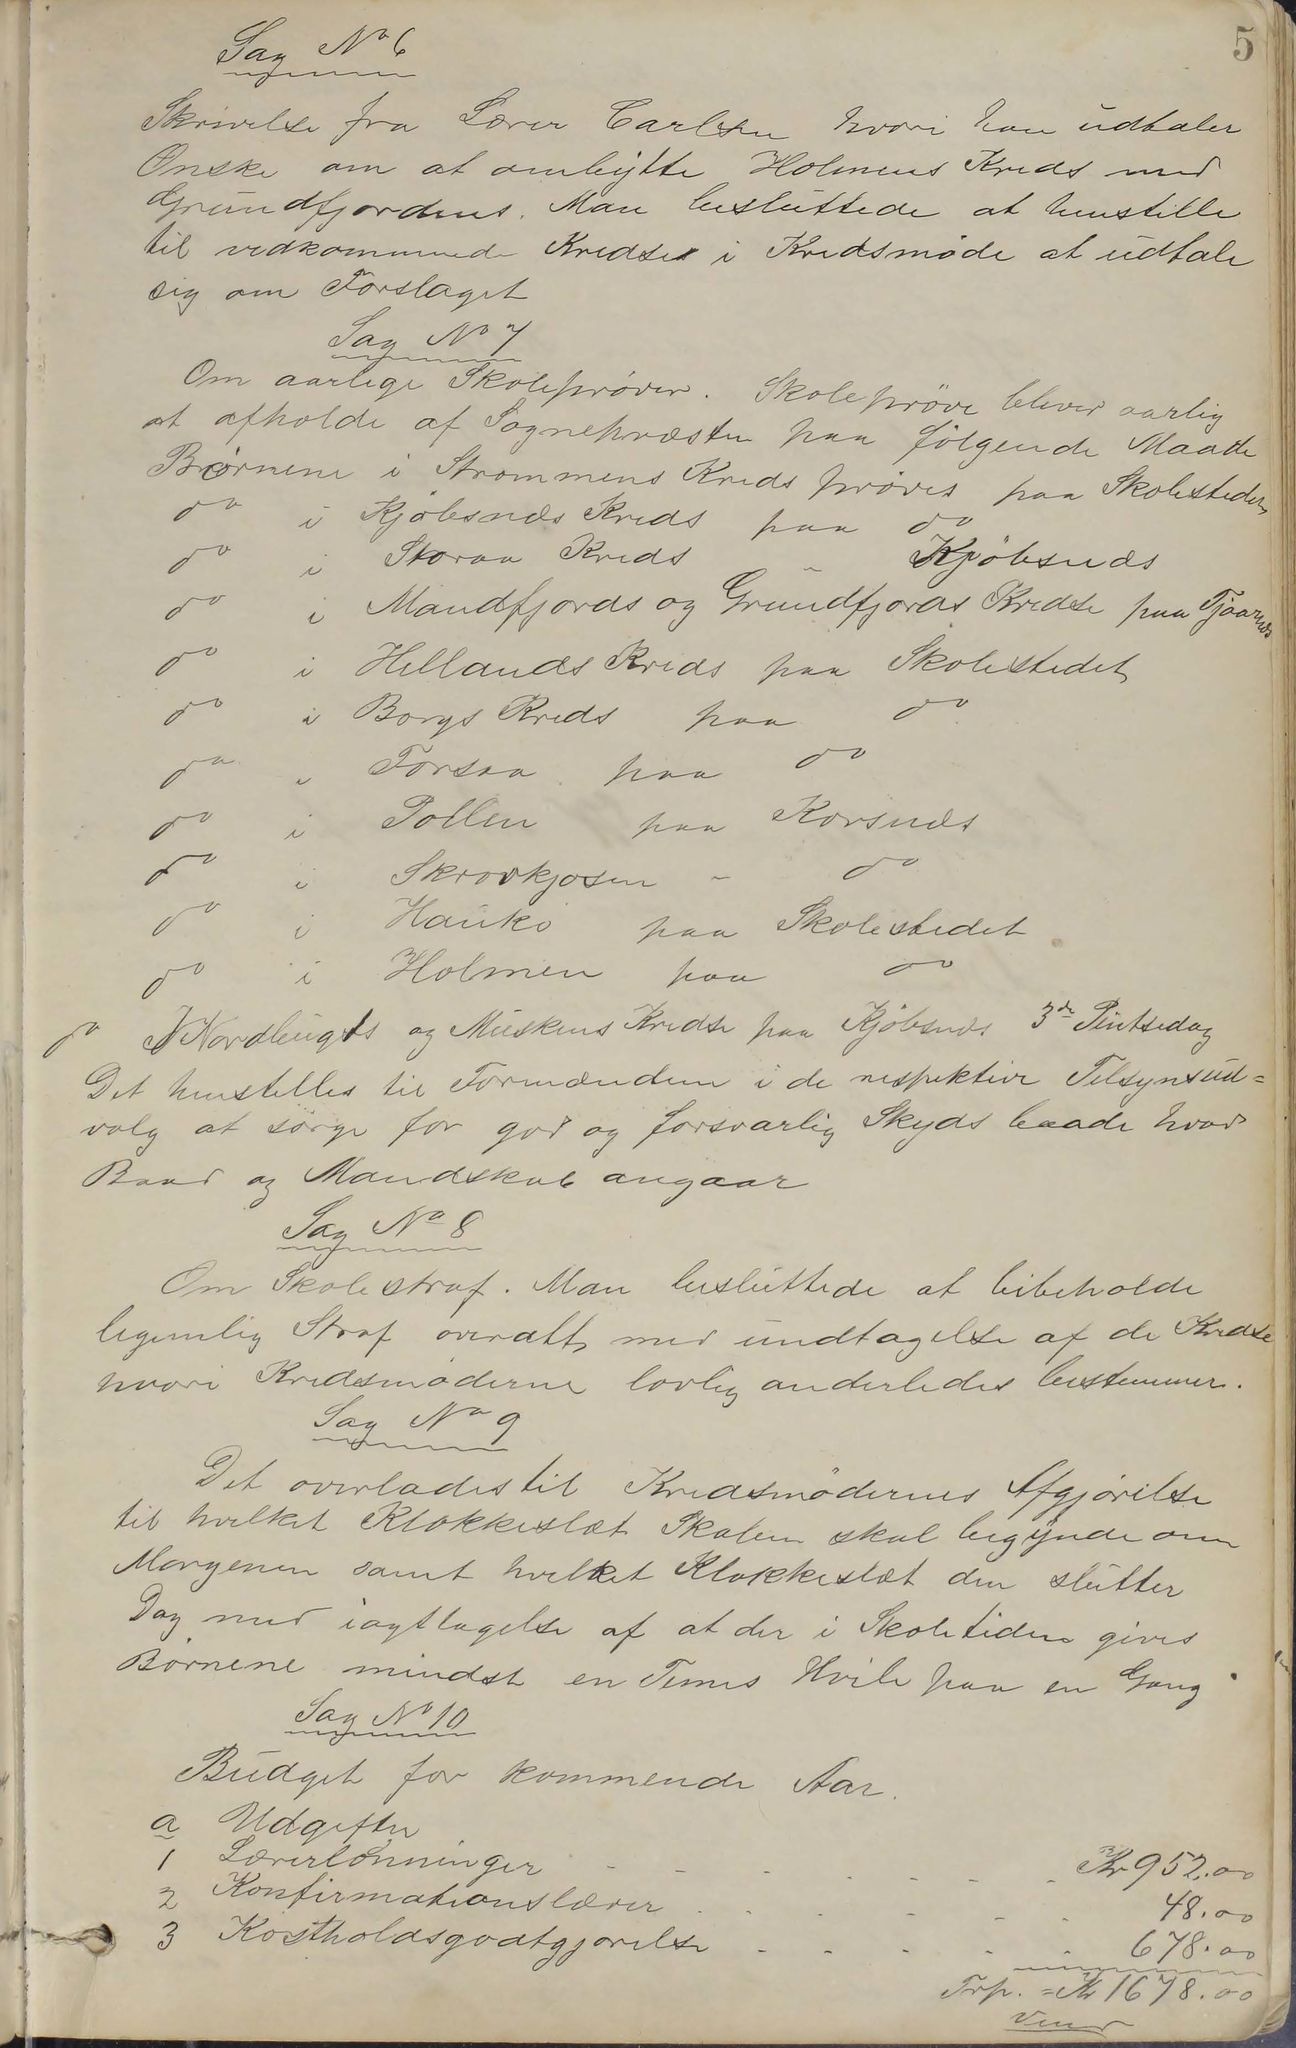 5
Sag No 6
Skrivelse fra Lærer Carlsen hvori han udtaler
Ønske om at ombytte Holmens Kreds med
Grundfjordens. Man besluttede at henstille
til vedkommende Kredse i Kredsmøde at udtale
sig om Forslaget
Sag No 7
Om aarlige Skoleprøver. Skoleprøve bliver aarlig
at afholde af Sognepræsten paa følgende Maade
Børnene i Strømmens Kreds prøves paa Skolestedet
do i Kjøbsnæs Kreds paa do
do i Storaa Kreds " Kjøbsnæs
do i Mandfjords og Grundfjords Kredse paa Tjaarnæs
do i Hellands Kreds paa Skolestedet
do i Borgs Kreds paa do
do i Forsaa paa do
do i Pollen paa Korsnæs
do i Skrovkjosen - do
do i Haukø paa Skolestedet
do i Holmen paa do
do i Nordbugts og Muskens Kredse paa Kjøbsnæs 3de Pintsedag
Det henstilles til Formændene i de respektive Tilsynsud=
valg at sørge for god og forsvarlig Skyds baade hvad
Baad og Mandskab angaar
Sag No 8
Om Skolestraf. Man besluttede at bibeholde
legemlig Straf overalt med undtagelse af de Kredse
hvori Kredsmøderne lovlig anderledes bestemmer.
Sag No 9
Det overlades til Kredsmødernes Afgjørelse
til hvilket Klokkeslæt Skolen skal begynde om
Morgenen samt hvilket Klokkeslæt den slutter
Dag med iagttagelse af at der i Skoletiden gives
Børnene mindst en Times Hvile paa en Gang
Sag No 10
Budget for kommende Aar.
a Udgifter
1 Lærerlønninger - - - - - - Kr 952.00
2 Konfirmationslærer . . . - - . 48.00
3 Kostholdsgodtgjørelse - - - - . 678.00
Trp. = Kr 1678.00
Vend